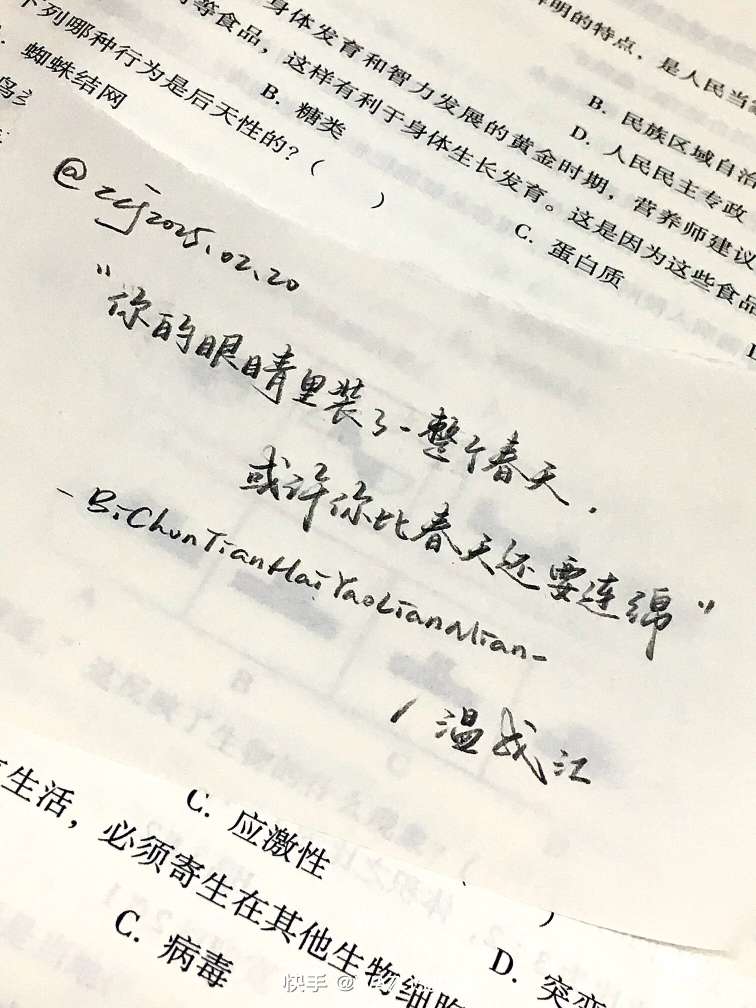 鲜明的特点，是人民当
B. 民族区域自治
D. 人民民主专政
身体发育和智力发展的黄金时期，营养师建议
等食品，这样有利于身体生长发育。这是因为这些食品
B. 糖类
C. 蛋白质
下列哪种行为是后天性的？（ ）
蜘蛛结网
@zcj2025.02.20
“你的眼睛里装了一整个春天.
或许你比春天还要连绵”
-BiChunTianHaiYaoLianMian-
/温成江
C. 应激性
D. 突变
生活，必须寄生在其他生物细胞
C. 病毒
快手 @